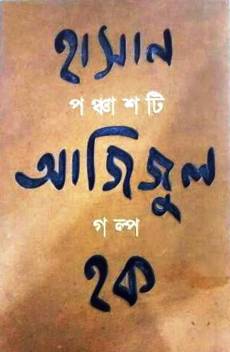 হাসান
পঞ্চাশটি
আজিজুল
গল্প
হক